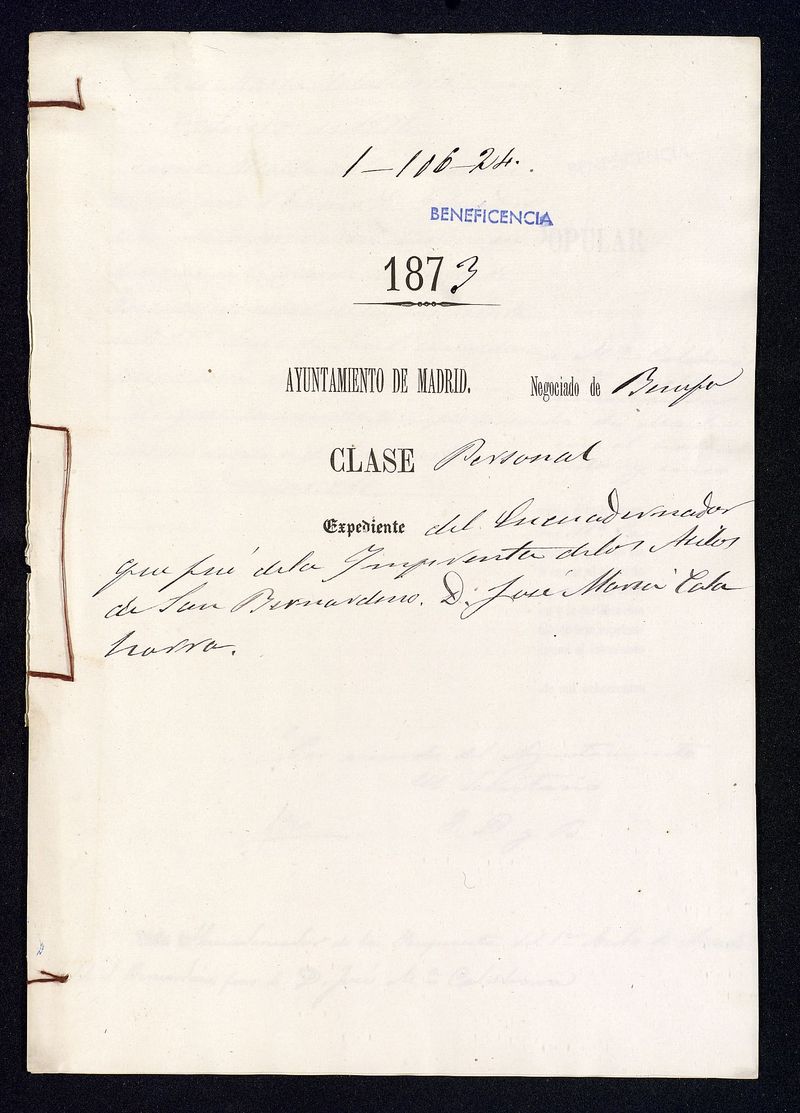 1-106-24.
BENEFICENCIA
1873
AYUNTAMIENTO DE MADRID. Negociado de
CLASE Personal
Expediente del Encuadernador
que fué dela Imprenta delos Asilos
de San Bernardino. D. José Maria Cala
horra.